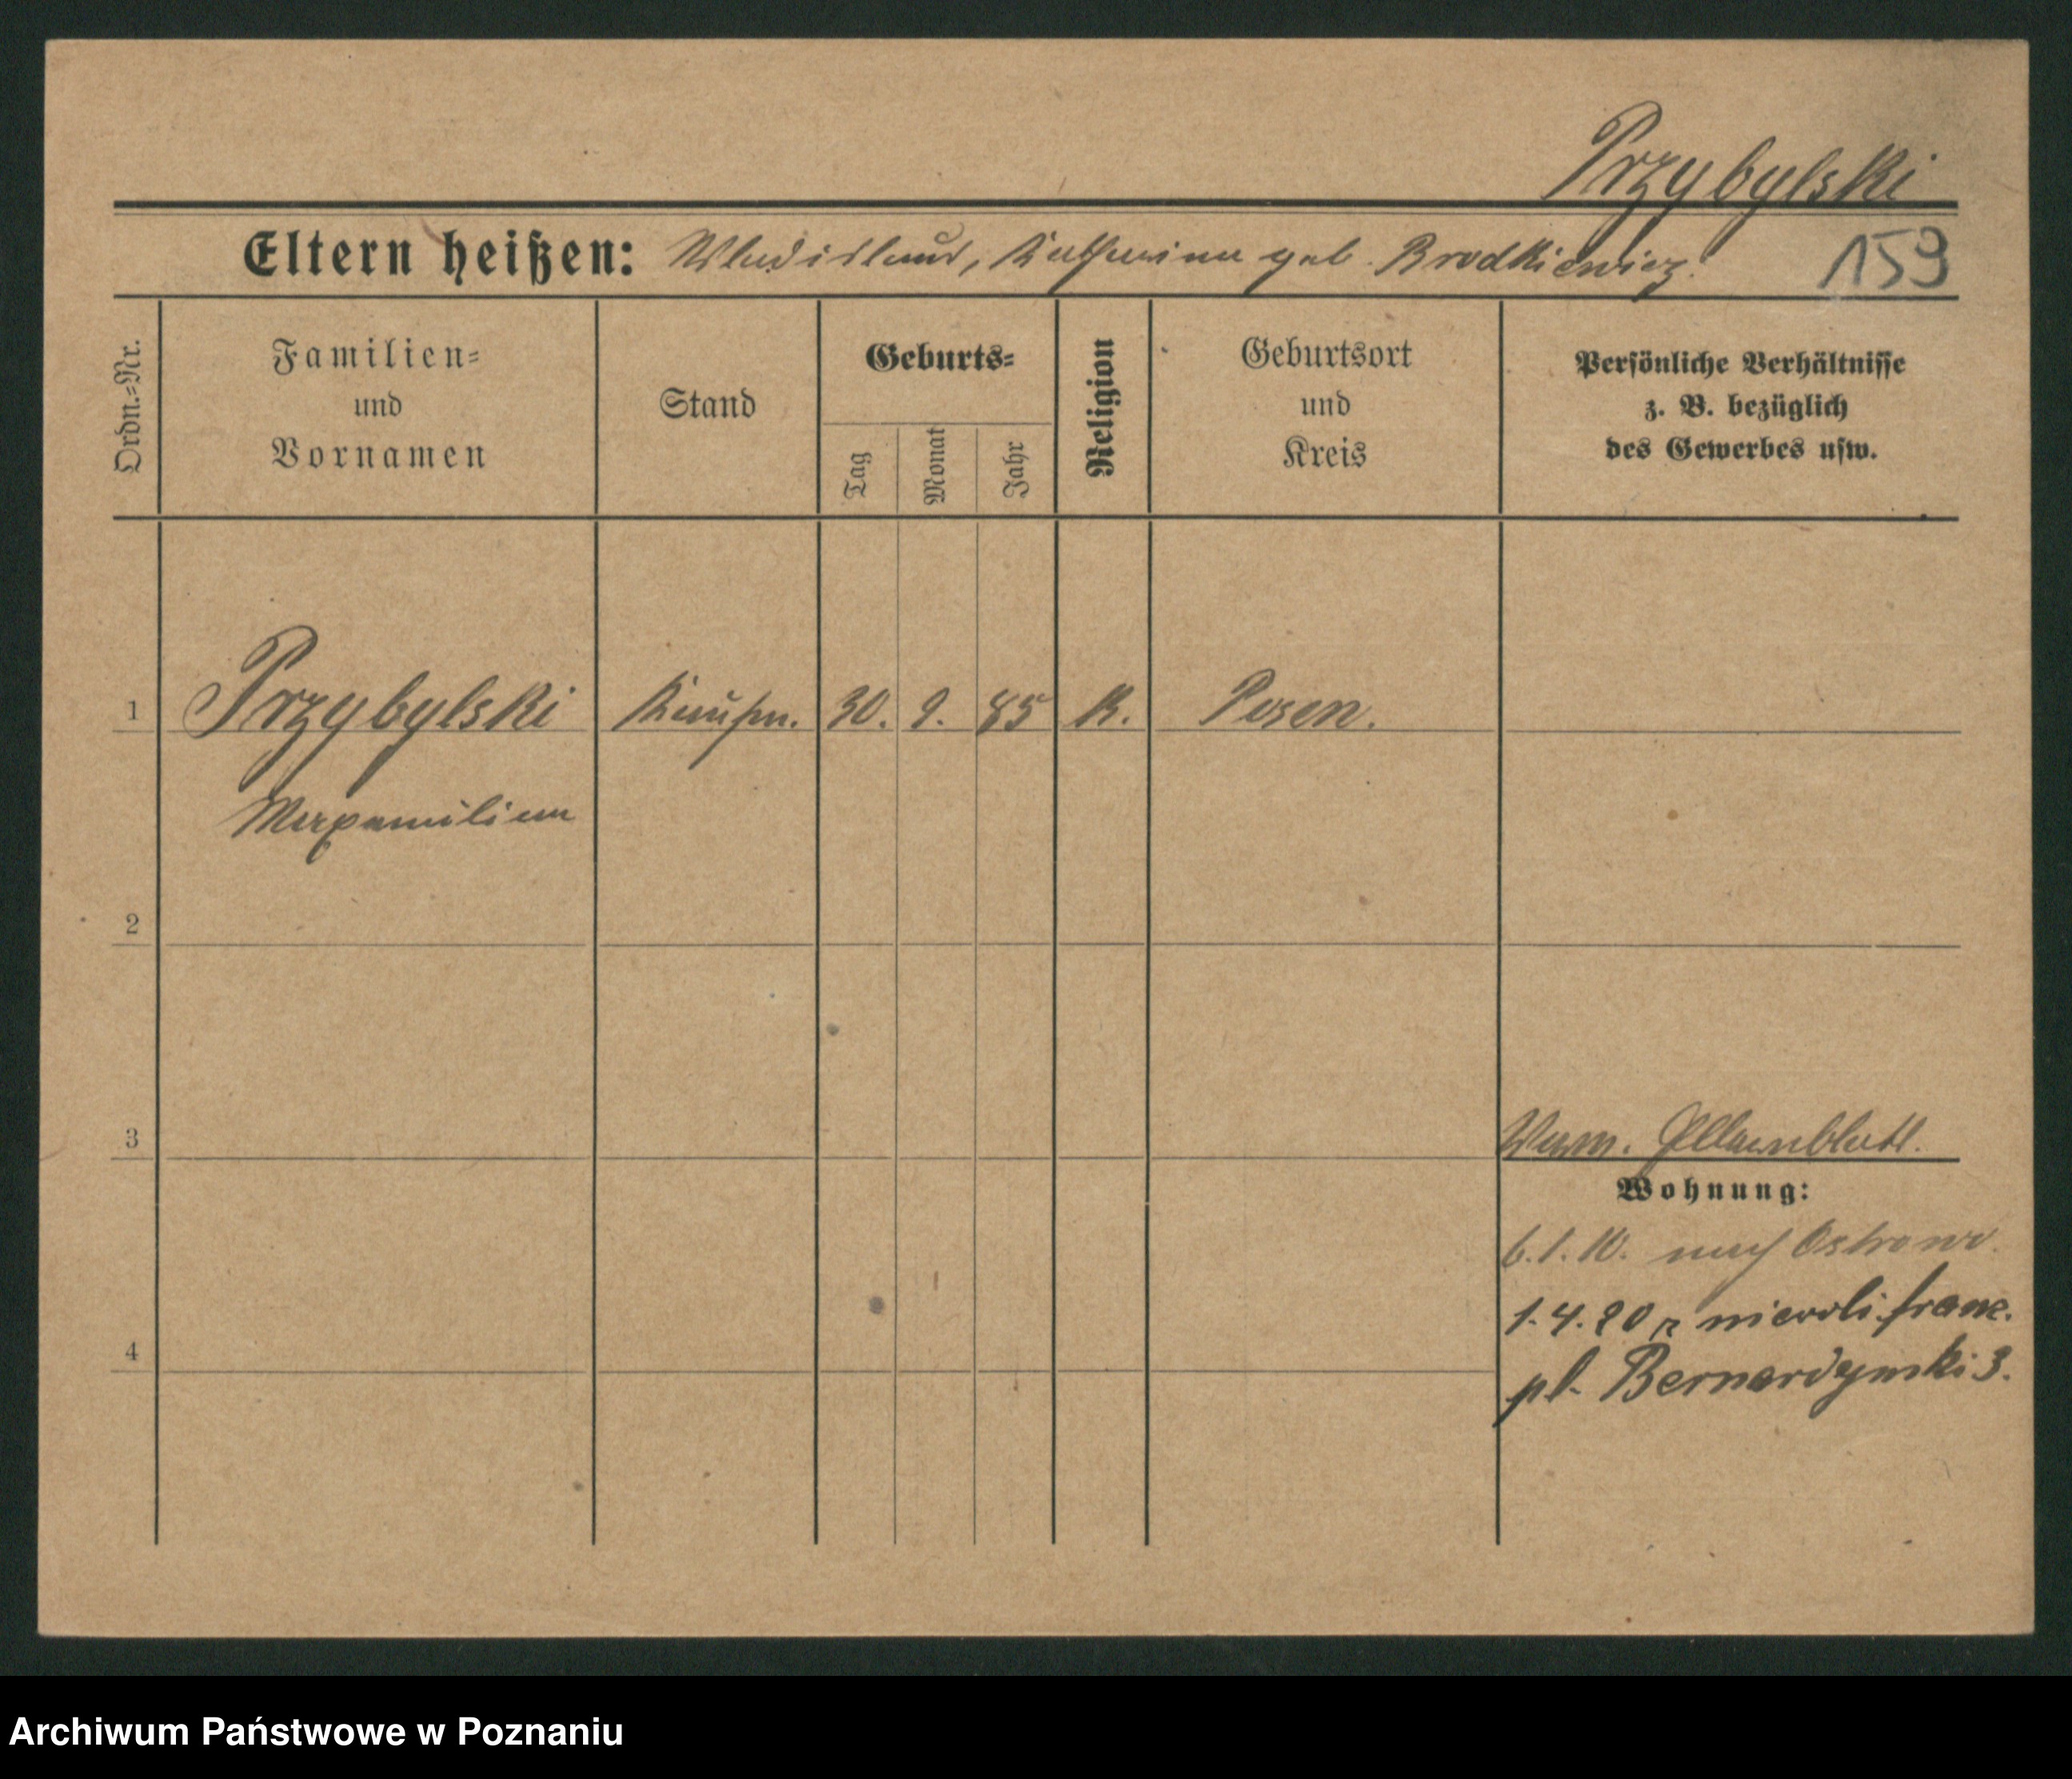 Przybylski
Eltern heißen: Wladislaus, Katharina geb. Brodkiewicz. 159
Ordn.-Nr.
Familien- und Vornamen
Stand
Geburts-
Tag
Monat
Jahr
Religion
Geburtsort und Kreis
Persönliche Verhältnisse z. B. bezüglich des Gewerbes usw.
1 Przybylski Kaufm. 30. 9. 85 K. Posen.
Maxymilian
2
3
Wohnung:
6.1.10. nach Ostrowo.
4
1.4.20 z niewoli franc.
pl. Bernardyński 3.
Archiwum Państwowe w Poznaniu